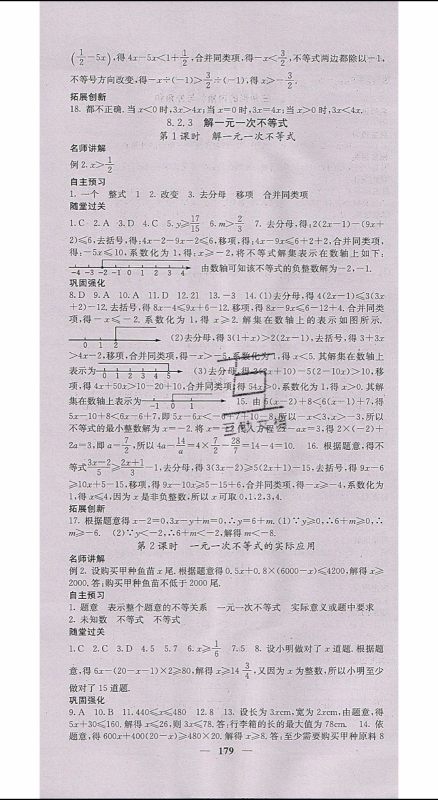 ($\frac{1}{2}$-5x),得 4x-5x<1+$\frac{1}{2}$,合并同类项,得-x<$\frac{3}{2}$,不等式两边都除以-1,
不等号方向改变,得-x÷(-1)>$\frac{3}{2}$÷(-1),得 x>-$\frac{3}{2}$.
拓展创新
18. 都不正确.当 x<0 时,3x>4x;当 x=0 时,3x=4x;当 x>0 时,3x<4x.
8.2.3 解一元一次不等式
第 1 课时 解一元一次不等式
名师讲解
例 2. x>$\frac{1}{2}$
自主预习
1. 一个 整式 1 2. 改变 3. 去分母 移项 合并同类项
随堂过关
1. C 2. A 3. D 4. C 5. y≥$\frac{17}{15}$ 6. m>$\frac{2}{3}$ 7. 去分母,得:2(2x-1)-(9x+
2)≤6,去括号,得:4x-2-9x-2≤6,移项,得:4x-9x≤6+2+2,合并同类项,
得:-5x≤10,系数化为 1,得:x≥-2,将不等式解集表示在数轴上如下:
-4 -3 -2 -1 0 1 2 3 4 由数轴可知该不等式的负整数解为-2,-1.
巩固强化
8. D 9. A 10. A 11. D 12. 21 13. -3 14. (1)去分母,得 4(2x-1)≤3(3x
+2)-12.去括号,得 8x-4≤9x+6-12.移项,得 8x-9x≤6-12+4.合并同类
项,得-x≤-2.系数化为 1,得 x≥2.解集在数轴上的表示如图所示.
0 1 2 (2)去分母,得 3(1+x)>2(2x-1),去括号,得 3+3x
>4x-2,移项,合并同类项,得-x>-5,系数化为 1,得 x<5.其解集在数轴上
表示为 0 1 2 3 4 5 (3)去分母,得 2(2x+10)-5(2-10x)>10,移
项,得 4x+50x>10-20+10,合并同类项,得 54x>0.系数化为 1,得 x>0.其解
集在数轴上表示为 -1 0 1 15. 由 5(x-2)+8<6(x-1)+7,得
5x-10+8<6x-6+7,即 5x-6x<-6+7+10-8,所以-x<3,x>-3.所以
不等式的最小整数解为 x=-2.将 x=-2 代入方程 2x-ax=3,得 2×(-2)+
2a=3,即 a=$\frac{7}{2}$,所以 4a-$\frac{14}{a}$=4×$\frac{7}{2}$-$\frac{28}{7}$=14-4=10. 16. 根据题意,得不
等式$\frac{3x-2}{5}$≥$\frac{2x+1}{3}$-1,去分母,得 3(3x-2)≥5(2x+1)-15,去括号,得 9x-6
≥10x+5-15,移项,得 9x-10x≥5-15+6,合并同类项,得-x≥-4,系数化为
1,得 x≤4,因为 x 是非负整数,所以 x 可取 0,1,2,3,4.
拓展创新
17. 根据题意得 x-2=0,3x-y+m=0,∴y=6+m. (1)∵y≥0,∴6+m≥0,∴
m≥-6. (2)∵y<-2,∴6+m<-2,解得 m<-8.
第 2 课时 一元一次不等式的实际应用
名师讲解
例 2. 设购买甲种鱼苗 x 尾.根据题意得 0.5x+0.8×(6000-x)≤4200,解得 x≥
2000.答:购买甲种鱼苗不低于 2000 尾.
自主预习
1. 题意 表示整个题意的不等关系 一元一次不等式 实际意义或题中要求
2. 未知数 不等式 不等式
随堂过关
1. C 2. C 3. D 4. 5 5. 7 6. x≥$\frac{1}{6}$ 7. 5 8. 设小明做对了 x 道题.根据题
意,得 6x-(20-x-1)×2≥80,解得 x≥14$\frac{3}{4}$,又因为 x 为整数,所以小明至少
做对了 15 道题.
巩固强化
9. A 10. B 11. 440≤x≤480 12. 8 13. 设长为 3xcm,宽为 2xcm,由题意,得
5x+30≤160.解得 x≤26,则 3x≤78.答:行李箱的长的最大值为 78cm. 14. 依
题意,得 600x+400(20-x)≥480×20.解得 x≥8.答:至少需要购买甲种原料 8
— 179 —